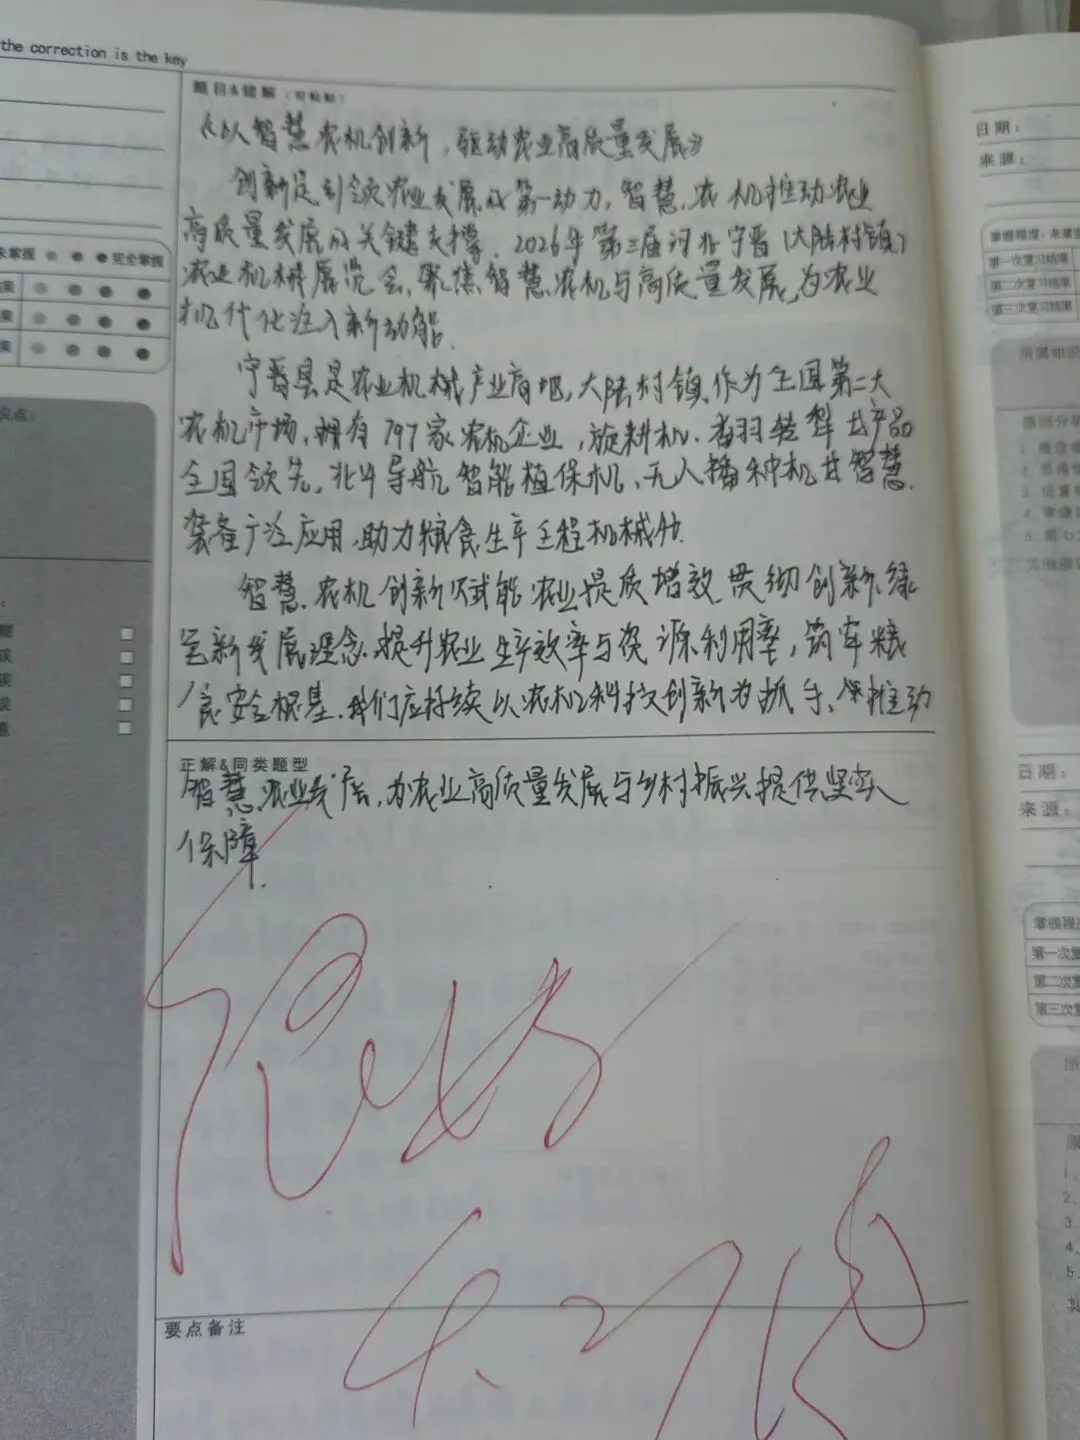 the correction is the key
题目&错解（可粘贴）
《以智慧农机创新，驱动农业高质量发展》
创新是引领农业发展的第一动力，智慧农机推动农业
高质量发展的关键支撑。2026年第三届河北宁晋（大陆村镇）
农业机械展览会，聚焦智慧农机与高质量发展，为农业
机代化注入新动能。
宁晋县是农业机械产业商地，大陆村镇作为全国第二大
农机市场，拥有797家农机企业，旋耕机、翻转犁出产品
全国领先，北斗导航智能植保机、无人播种机等智慧
装备广泛应用，助力粮食生产全程机械化。
智慧农机创新赋能农业提质增效，贯彻创新、绿
色新发展理念，提升农业生产效率与资源利用率，筑牢粮
食安全根基。我们应持续以农机科技创新为抓手，推动
正解&同类题型
智慧农业发展，为农业高质量发展与乡村振兴提供坚实
保障。
要点备注
未掌握 完全掌握
日期：
来源：
掌握程度：未掌
第一次复习结果
第二次复习结果
第三次复习结果
所属知识
原因分
日期：
来源：
掌握程度
第一次复
第二次复
第三次复
1、
2、
3、
4、
5、